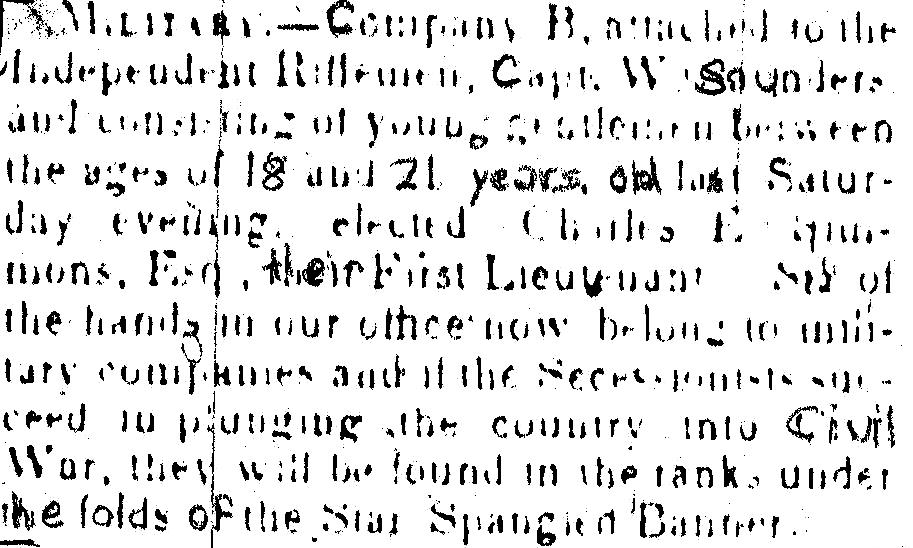 MILITARY.—Company B, attached to the
Independent Riflemen, Capt. W Saunders
and consisting of young gentlemen between
the ages of 18 and 21 years, old last Satur-
day evening, elected Charles E.
mons, Esq., their First Lieutenant Six of
the hands in our office now belong to mili-
tary companies and if the Secessionists suc-
ceed in plunging the country into Civil
War, they will be found in the ranks under
the folds of the Star Spangled Banner.